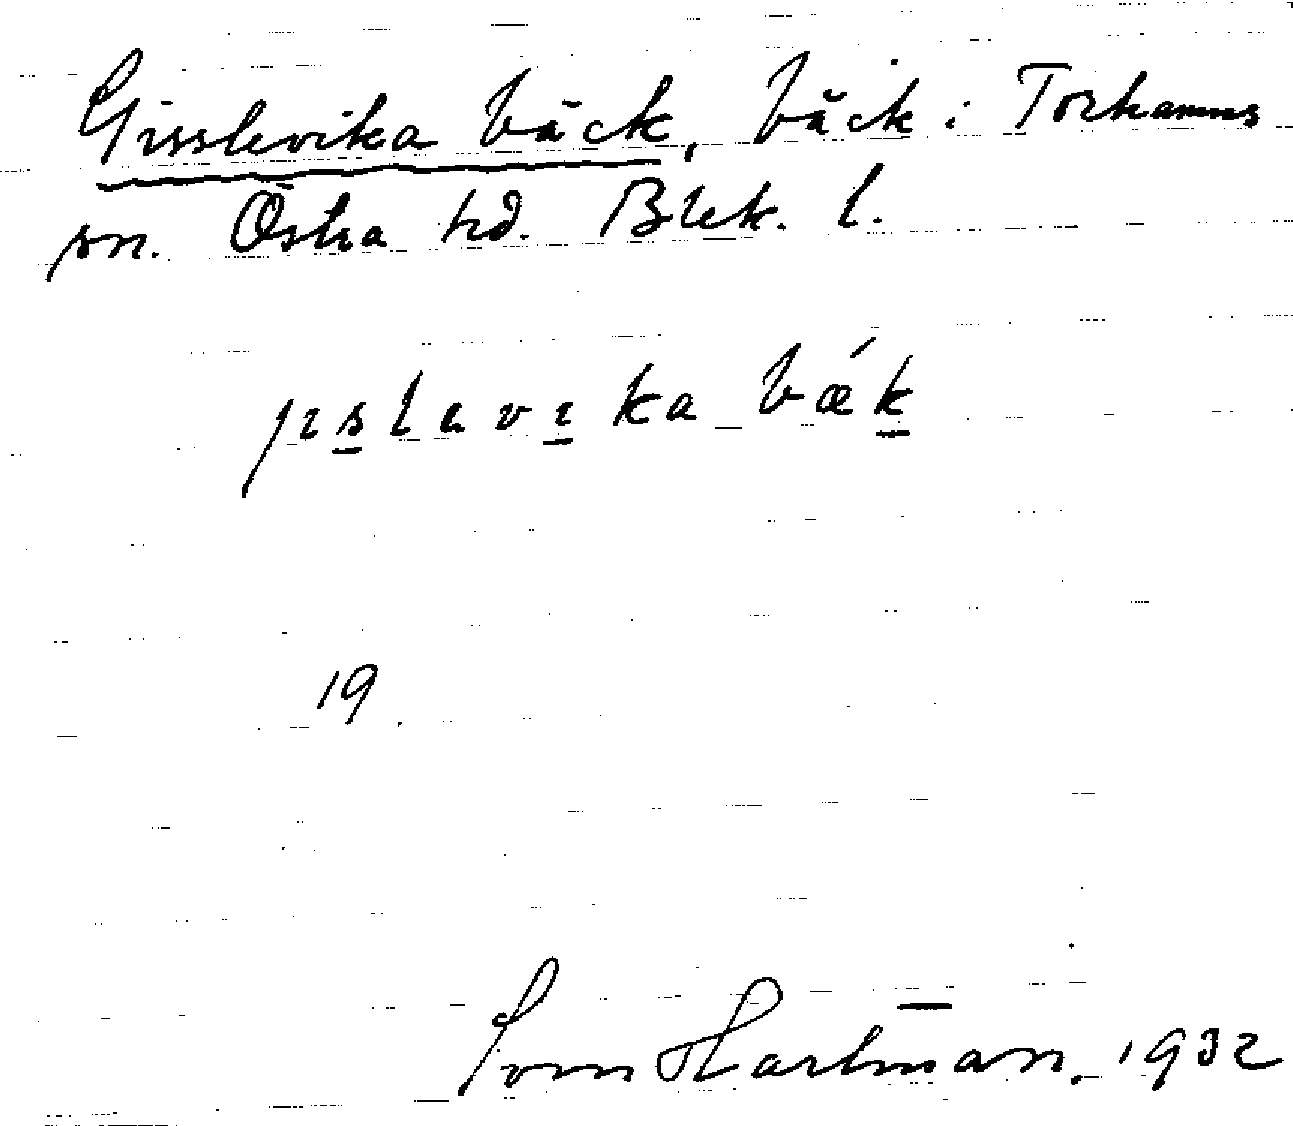 Gisslevika bäck, bäck i Torhamns
sn. Östra hd. Blek. l.
jıslavıka bǽk
19.
Sven Hartman. 1932